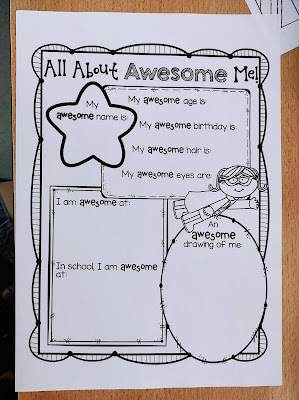 All About Awesome Me!
My
awesome name is:
My awesome age is:
My awesome birthday is:
My awesome hair is:
My awesome eyes are:
I am awesome at:
In school, I am awesome
at:
An
awesome
drawing of me: